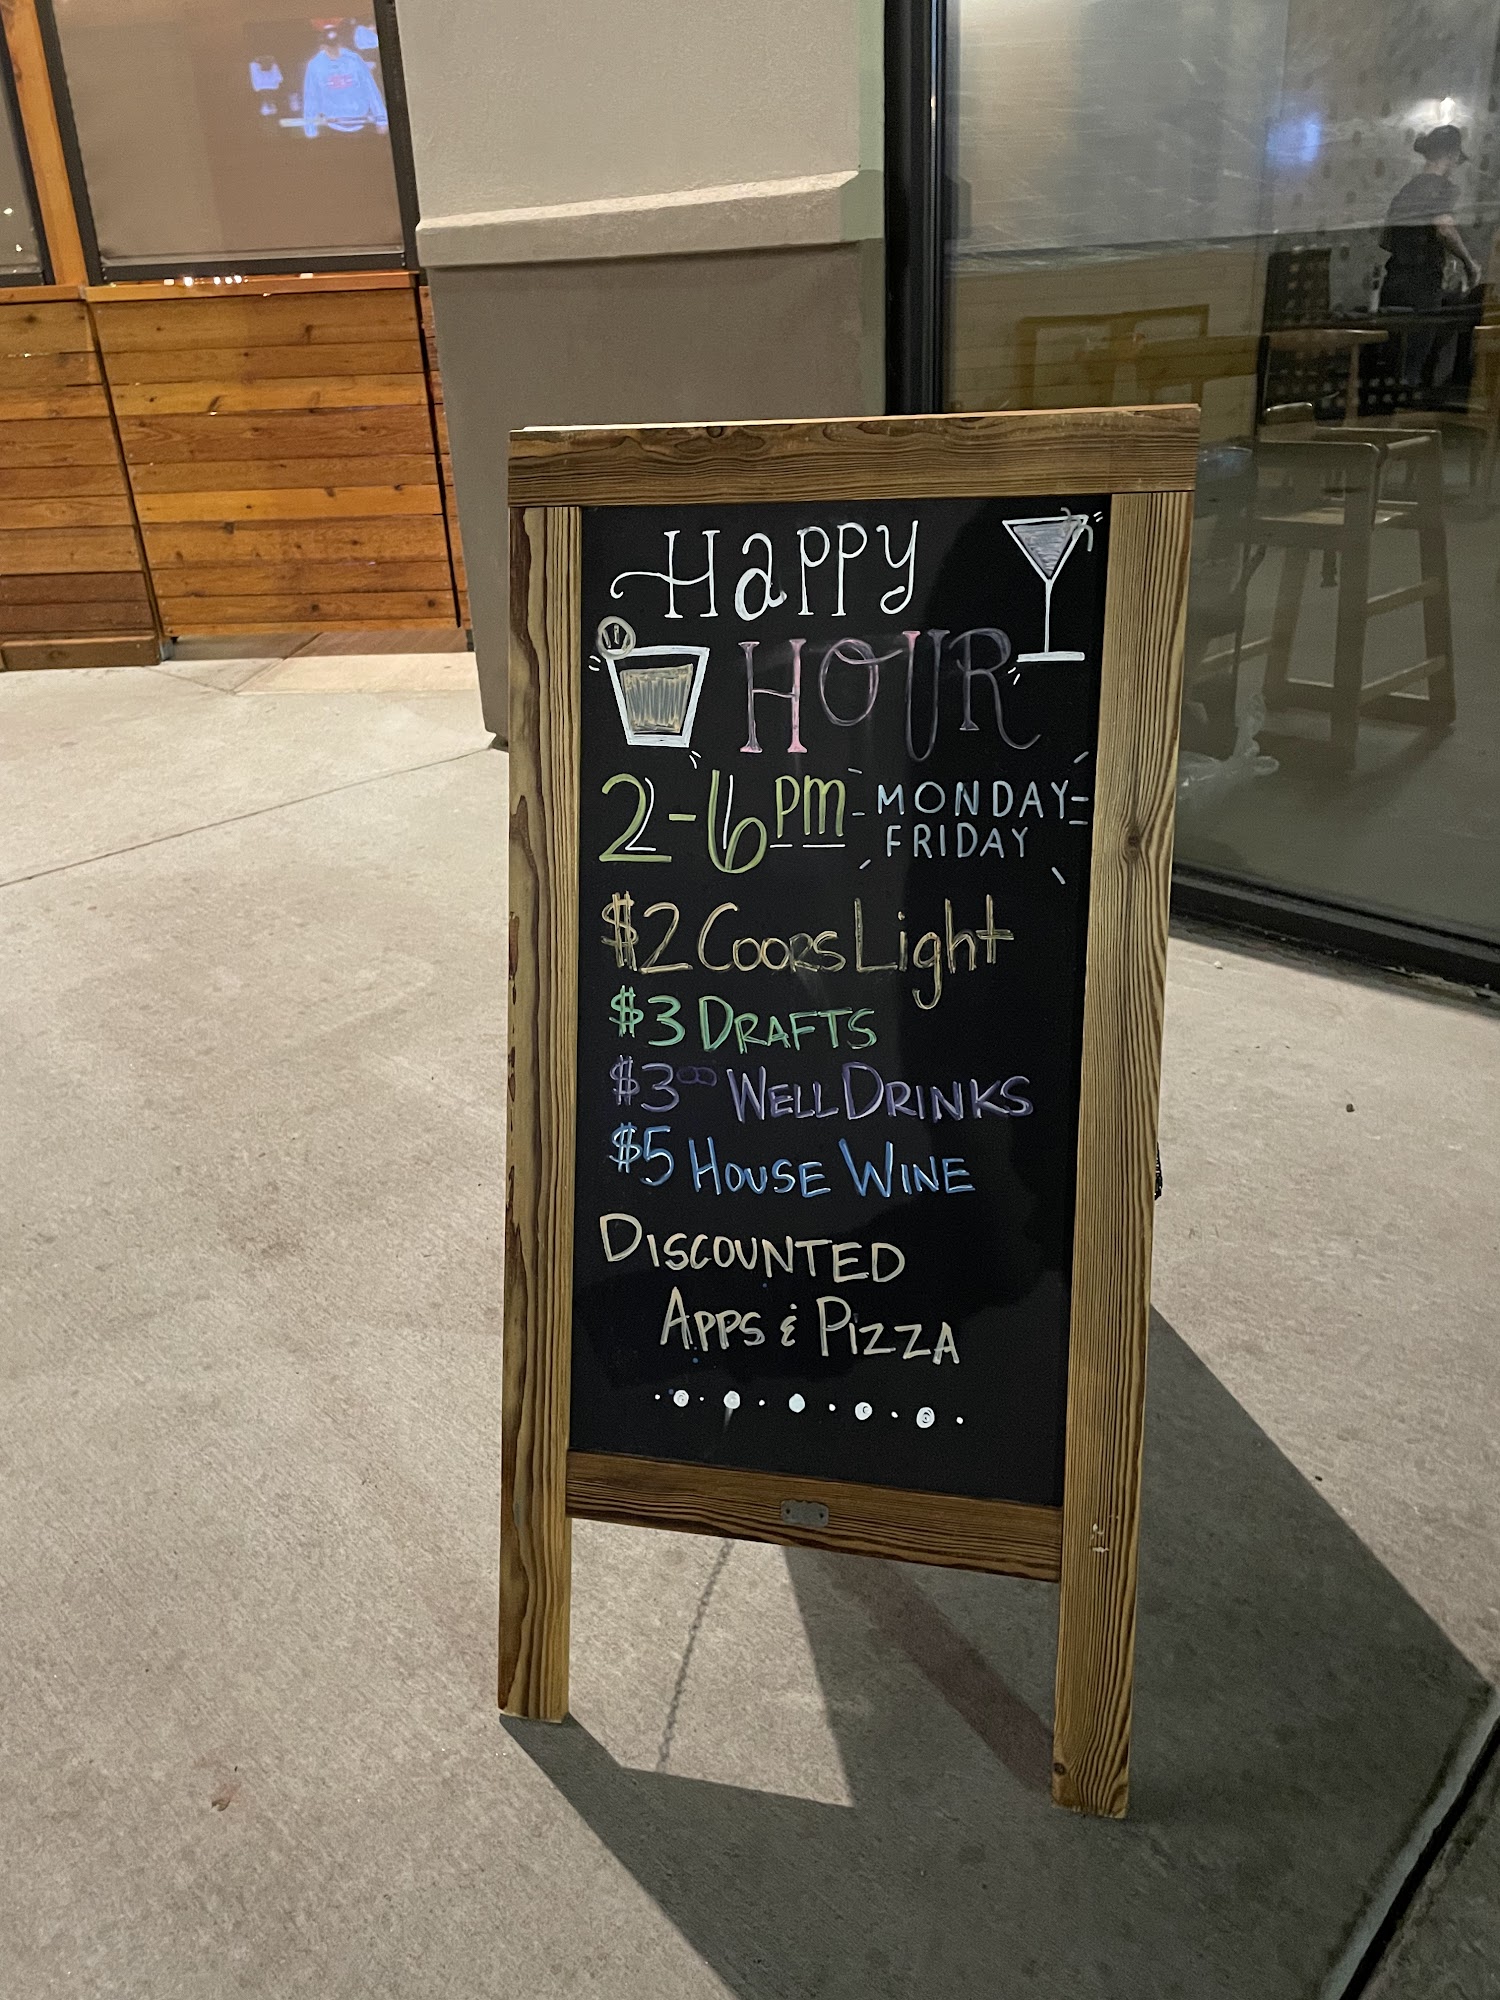 Happy
HOUR
2-6pm MONDAY-
FRIDAY
$2 Coors Light
$3 DRAFTS
$3⁰⁰ WELL DRINKS
$5 HOUSE WINE
DISCOUNTED
APPS & PIZZA